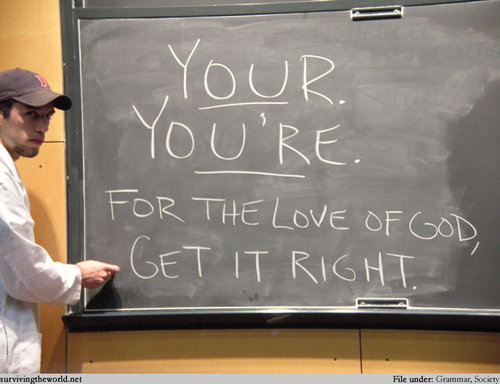 YOUR.
YOU'RE.
FOR THE LOVE OF GOD,
GET IT RIGHT.
survivingtheworld.net
File under: Grammar, Society